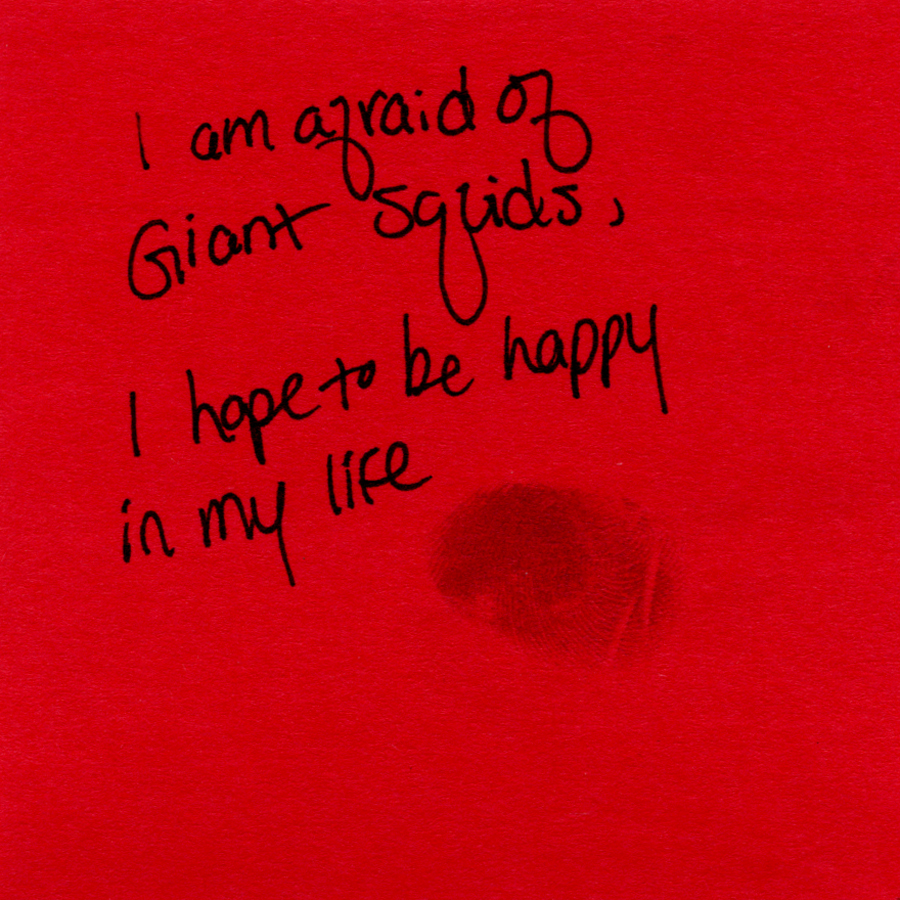 I am afraid of
Giant Squids,
I hope to be happy
in my life